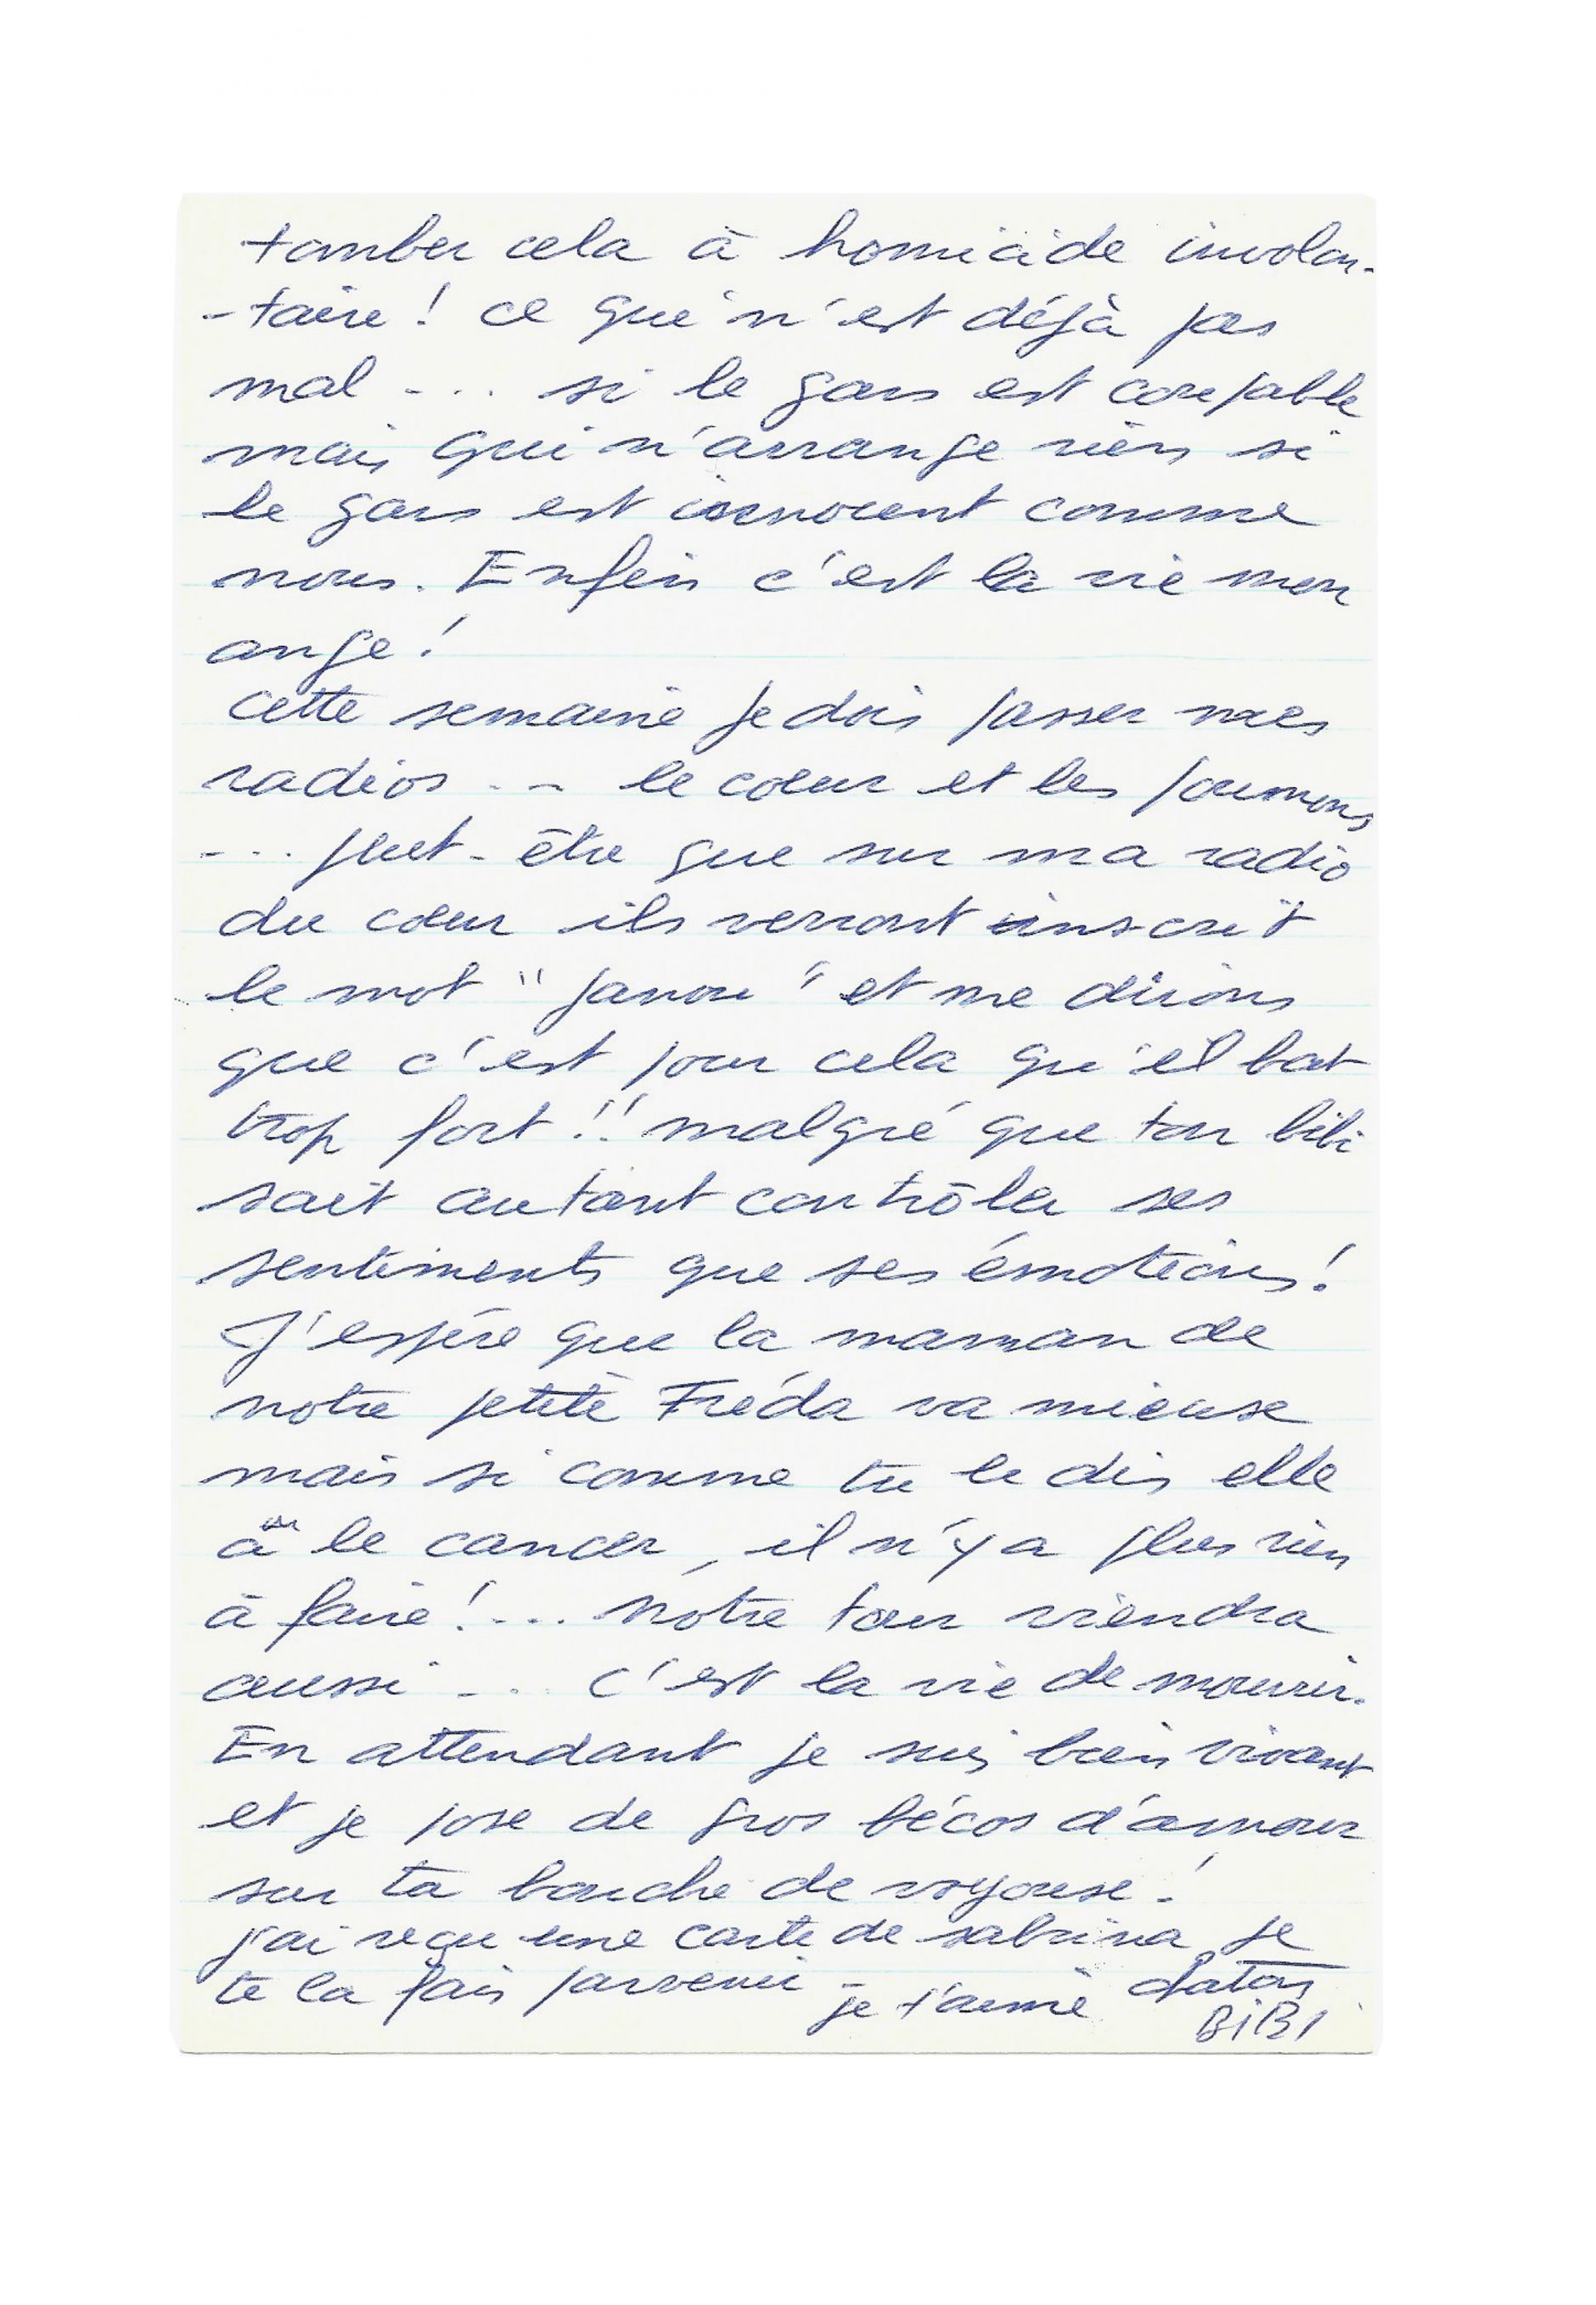 tomber cela à homicide involon-
-taire ! ce qui n'est déjà pas
mal - . . si le gars est coupable
mais qui n'arrange rien si
le gars est innocent comme
nous. Enfin c'est la vie mon
ange !
cette semaine je dois passer mes
radios . . - le coeur et les poumons
- . . peut-être que sur ma radio
du coeur ils verront inscrit
le mot " janou " et me dirons
que c'est pour cela qu'il bat
trop fort !! malgré que ton bibi
sait autant contrôler ses
sentiments que ses émotions !
J'espère que la maman de
notre petite Fréda va mieuse
mais si comme tu le dis elle
a le cancer, il n'y a plus rien
à faire ! - . . notre tour viendra
aussi - . . c'est la vie de mourrir.
En attendant je suis bien vivant
et je pose de gros bécos d'amour
sur ta bouche de voyouse !
j'ai reçu une carte de sabrina je
te la fais parvenir - je t'aime
BiBi